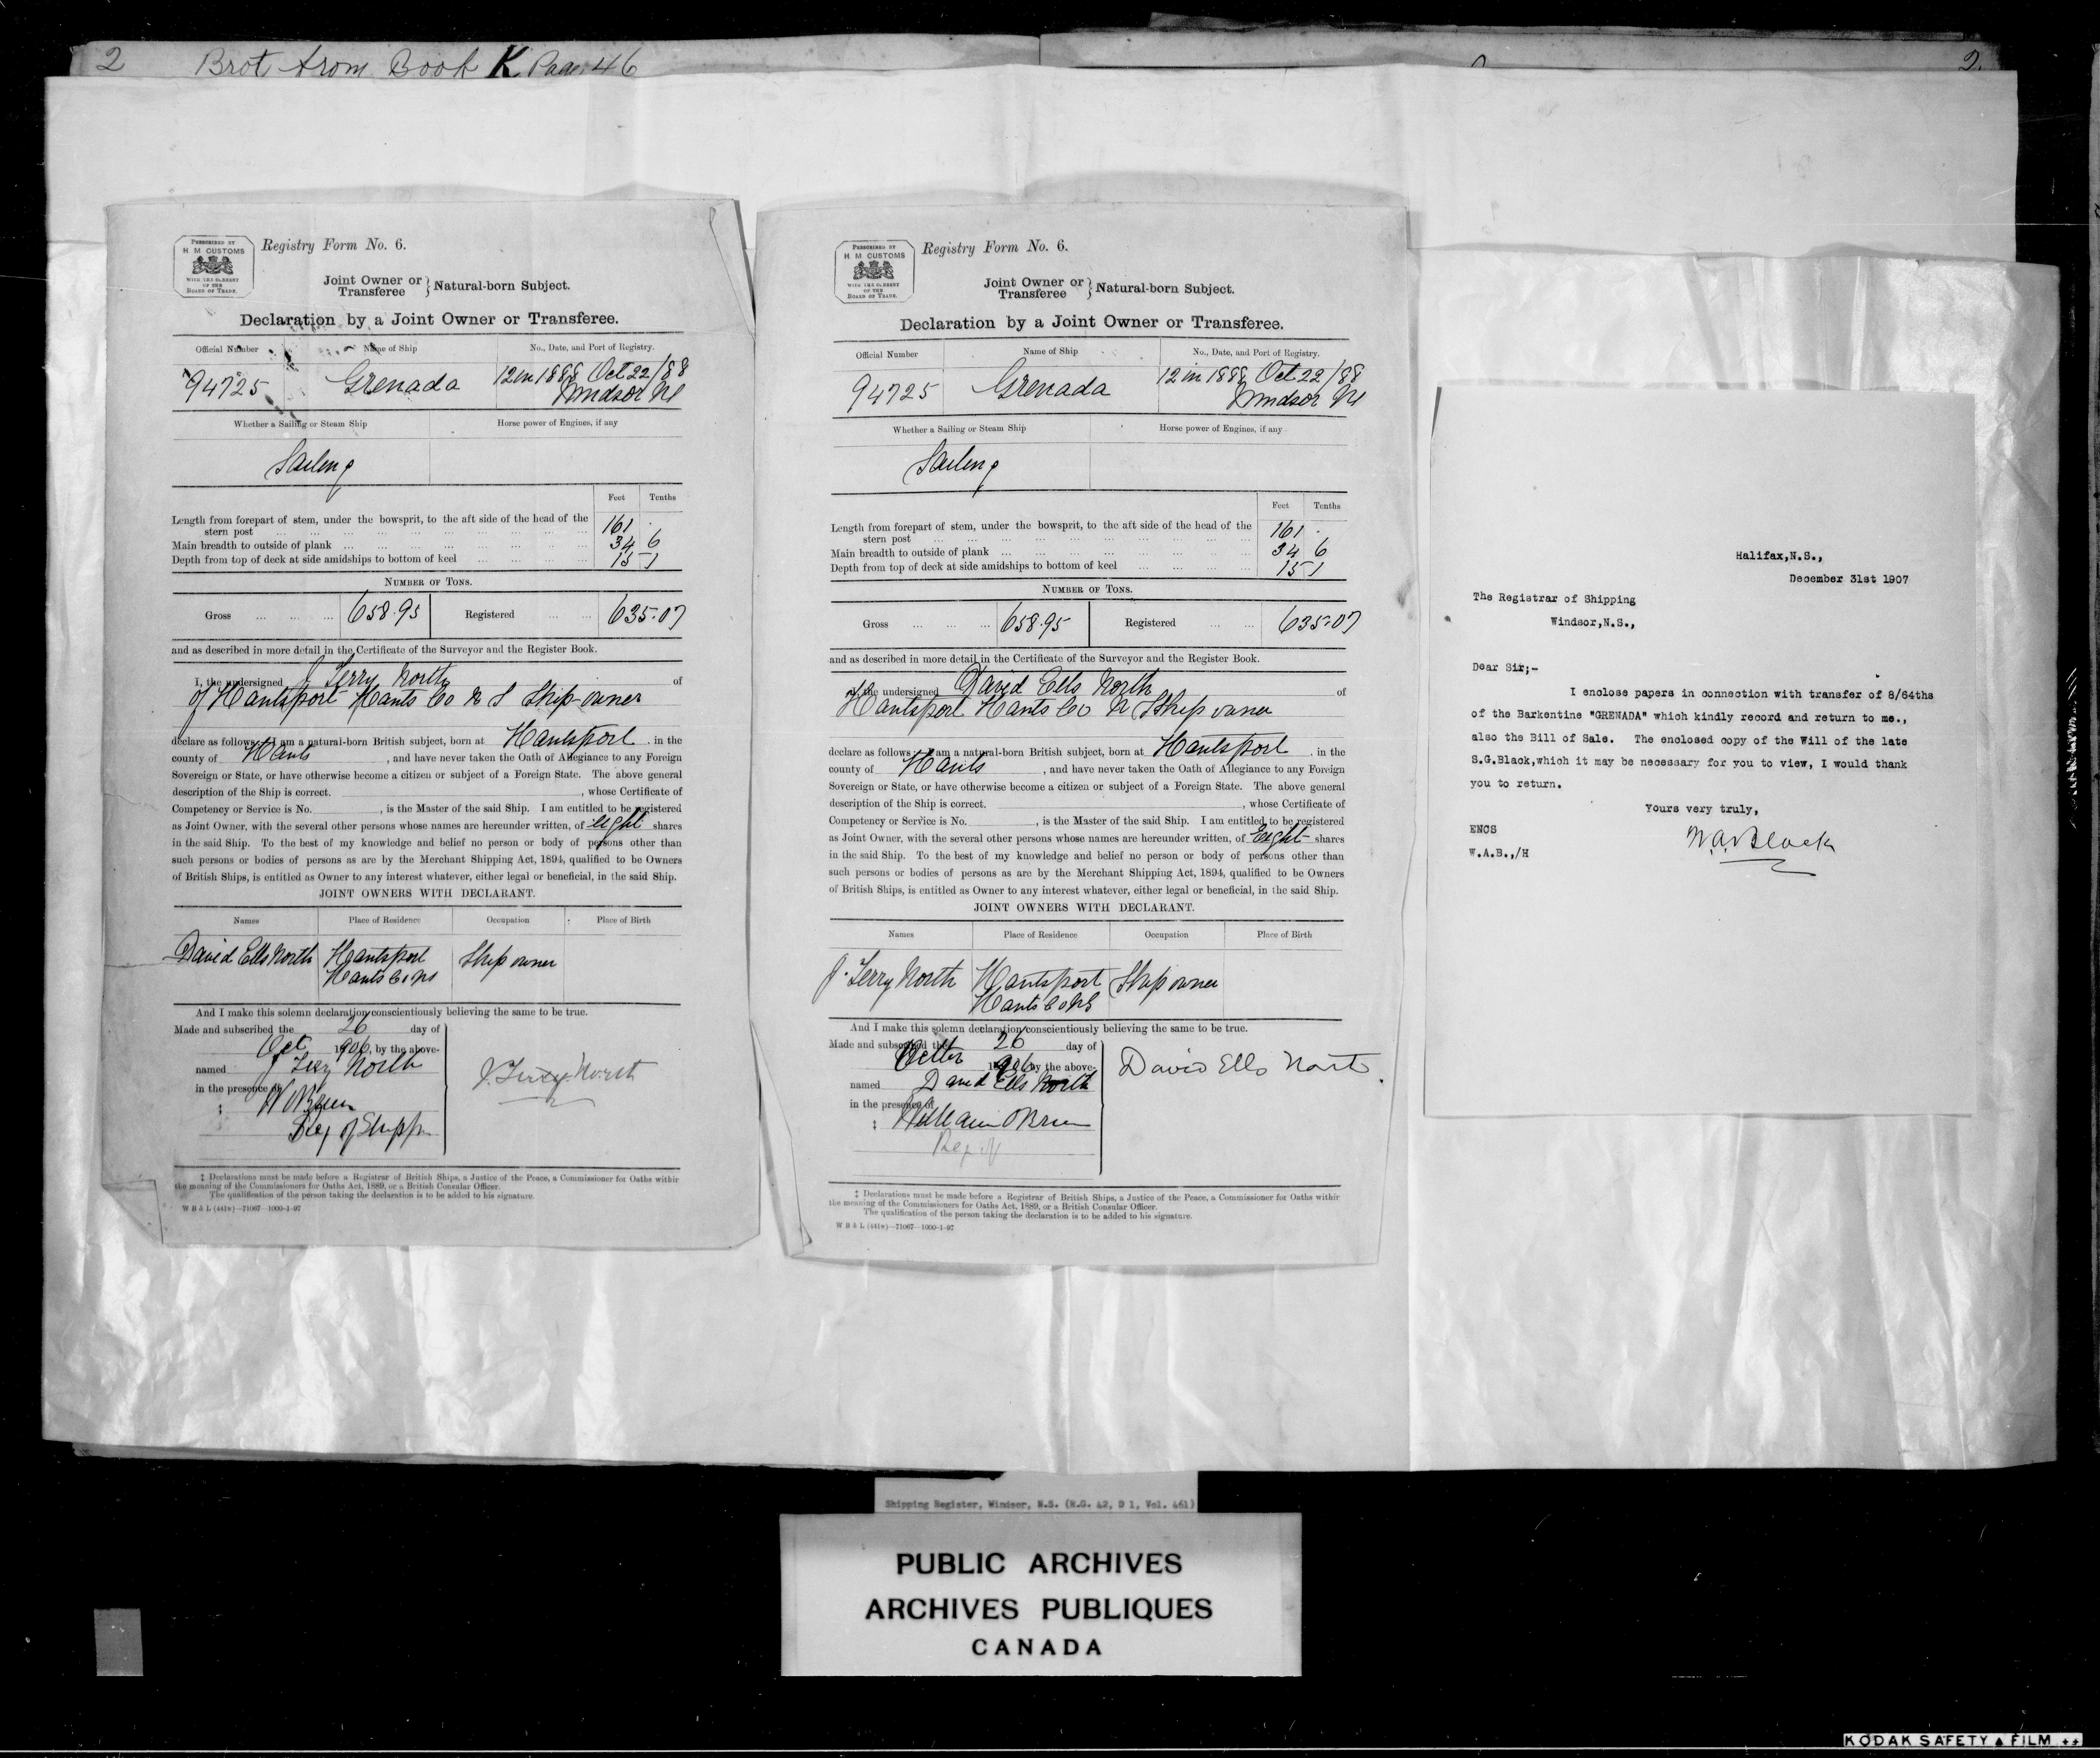 2 Brot from Book K Page 46
2
PRESCRIBED BY
H M CUSTOMS
WITH THE CONSENT
OF THE
BOARD OF TRADE.
Registry Form No. 6.
Joint Owner or } Natural-born Subject.
Transferee
Declaration by a Joint Owner or Transferee.
Official Number Name of Ship No., Date, and Port of Registry.
94725 Grenada 12 in 1888 Oct 22/88
Windsor NS
Whether a Sailing or Steam Ship Horse power of Engines, if any
Sailing
Feet Tenths
Length from forepart of stem, under the bowsprit, to the aft side of the head of the
stern post ... 161 .
Main breadth to outside of plank ... 34 6
Depth from top of deck at side amidships to bottom of keel ... 15 1
NUMBER OF TONS.
Gross ... 658.95 Registered ... 635.07
and as described in more detail in the Certificate of the Surveyor and the Register Book.
I, the undersigned J Terry North of
of Hantsport Hants Co N S Ship-owner
declare as follows I am a natural-born British subject, born at Hantsport in the
county of Hants, and have never taken the Oath of Allegiance to any Foreign
Sovereign or State, or have otherwise become a citizen or subject of a Foreign State. The above general
description of the Ship is correct. , whose Certificate of
Competency or Service is No. , is the Master of the said Ship. I am entitled to be registered
as Joint Owner, with the several other persons whose names are hereunder written, of eight shares
in the said Ship. To the best of my knowledge and belief no person or body of persons other than
such persons or bodies of persons as are by the Merchant Shipping Act, 1894, qualified to be Owners
of British Ships, is entitled as Owner to any interest whatever, either legal or beneficial, in the said Ship.
JOINT OWNERS WITH DECLARANT.
Names Place of Residence Occupation Place of Birth
David Ells North Hantsport Ship owner
Hants Co NS
And I make this solemn declaration conscientiously believing the same to be true.
Made and subscribed the 26 day of
Oct 1906, by the above-
named J Terry North
in the presence of
‡ W OBrien
Reg of Shippn
J. Terry North
‡ Declarations must be made before a Registrar of British Ships, a Justice of the Peace, a Commissioner for Oaths within
the meaning of the Commissioners for Oaths Act, 1889, or a British Consular Officer.
The qualification of the person taking the declaration is to be added to his signature.
W B & L (441w)—71067—1000-1-97
PRESCRIBED BY
H M CUSTOMS
WITH THE CONSENT
OF THE
BOARD OF TRADE.
Registry Form No. 6.
Joint Owner or } Natural-born Subject.
Transferee
Declaration by a Joint Owner or Transferee.
Official Number Name of Ship No., Date, and Port of Registry.
94725 Grenada 12 in 1888 Oct 22/88
Windsor NS
Whether a Sailing or Steam Ship Horse power of Engines, if any
Sailing
Feet Tenths
Length from forepart of stem, under the bowsprit, to the aft side of the head of the
stern post ... 161 .
Main breadth to outside of plank ... 34 6
Depth from top of deck at side amidships to bottom of keel ... 15 1
NUMBER OF TONS.
Gross ... 658.95 Registered ... 635.07
and as described in more detail in the Certificate of the Surveyor and the Register Book.
I, the undersigned David Ells North of
of Hantsport Hants Co N S Ship owner
declare as follows I am a natural-born British subject, born at Hantsport in the
county of Hants, and have never taken the Oath of Allegiance to any Foreign
Sovereign or State, or have otherwise become a citizen or subject of a Foreign State. The above general
description of the Ship is correct. , whose Certificate of
Competency or Service is No. , is the Master of the said Ship. I am entitled to be registered
as Joint Owner, with the several other persons whose names are hereunder written, of Eight shares
in the said Ship. To the best of my knowledge and belief no person or body of persons other than
such persons or bodies of persons as are by the Merchant Shipping Act, 1894, qualified to be Owners
of British Ships, is entitled as Owner to any interest whatever, either legal or beneficial, in the said Ship.
JOINT OWNERS WITH DECLARANT.
Names Place of Residence Occupation Place of Birth
J. Terry North Hantsport Ship owner
Hants Co NS
And I make this solemn declaration conscientiously believing the same to be true.
Made and subscribed the 26 day of
1906 by the above-
named David Ells North
in the presence of
‡ William OBrien
Reg of
David Ells North.
‡ Declarations must be made before a Registrar of British Ships, a Justice of the Peace, a Commissioner for Oaths within
the meaning of the Commissioners for Oaths Act, 1889, or a British Consular Officer.
The qualification of the person taking the declaration is to be added to his signature.
W B & L (441w)—71067—1000-1-97
Halifax,N.S.,
December 31st 1907
The Registrar of Shipping
Windsor,N.S.,
Dear Sir;-
I enclose papers in connection with transfer of 8/64ths
of the Barkentine "GRENADA" which kindly record and return to me.,
also the Bill of Sale. The enclosed copy of the Will of the late
S.G.Black,which it may be necessary for you to view, I would thank
you to return.
Yours very truly,
ENCS
W.A.Black
W.A.B.,/H
Shipping Register, Windsor, N.S. (R.G. 42, D 1, Vol. 461)
PUBLIC ARCHIVES
ARCHIVES PUBLIQUES
CANADA
KODAK SAFETY ▲ FILM ++